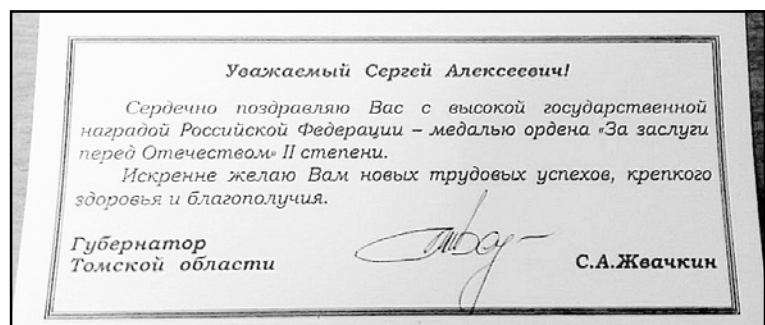 Уважаемый Сергей Алексеевич!
Сердечно поздравляю Вас с высокой государственной
наградой Российской Федерации – медалью ордена «За заслуги
перед Отечеством» II степени.
Искренне желаю Вам новых трудовых успехов, крепкого
здоровья и благополучия.
Губернатор
Томской области
С.А.Жвачкин